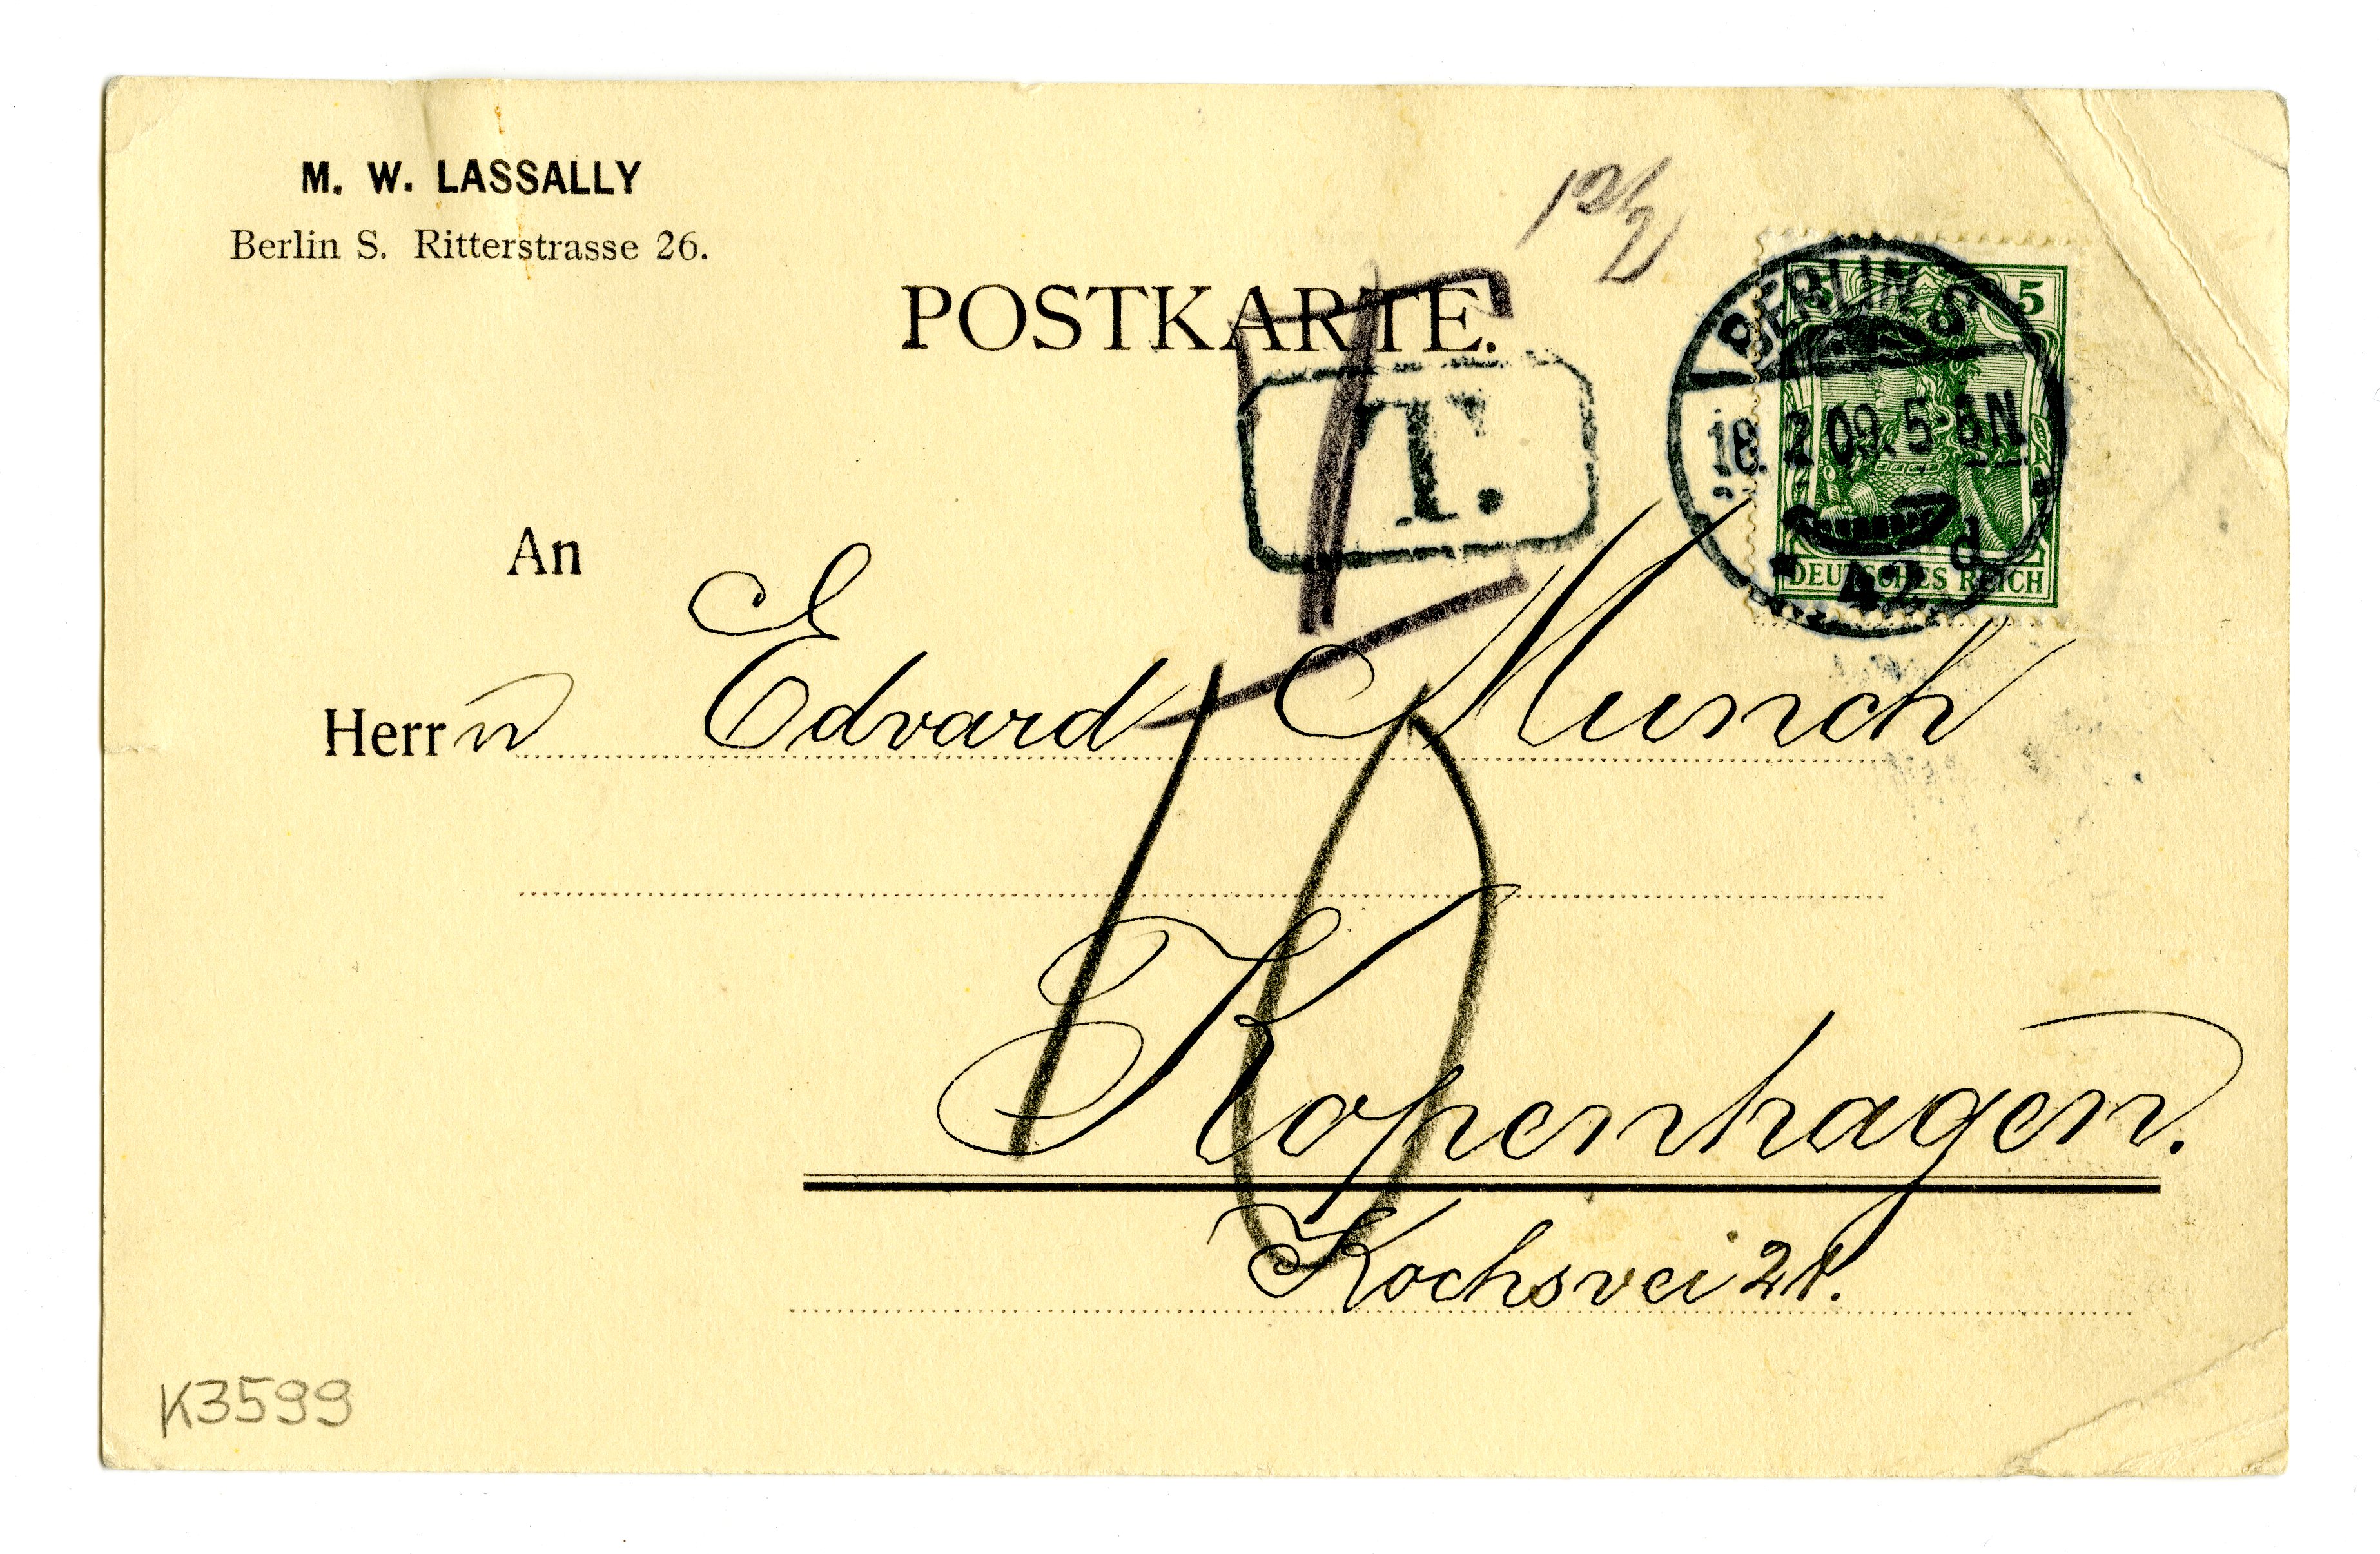 M. W. LASSALLY
Berlin S. Ritterstrasse 26.
12½
POSTKARTE.
T.
BERLIN S.
5
18. 2 09. 5-6 N.
d
* 42
DEUTSCHES REICH
An
Herrn Edvard Munch
10
Kopenhagen.
Kochsvei 21.
K3599